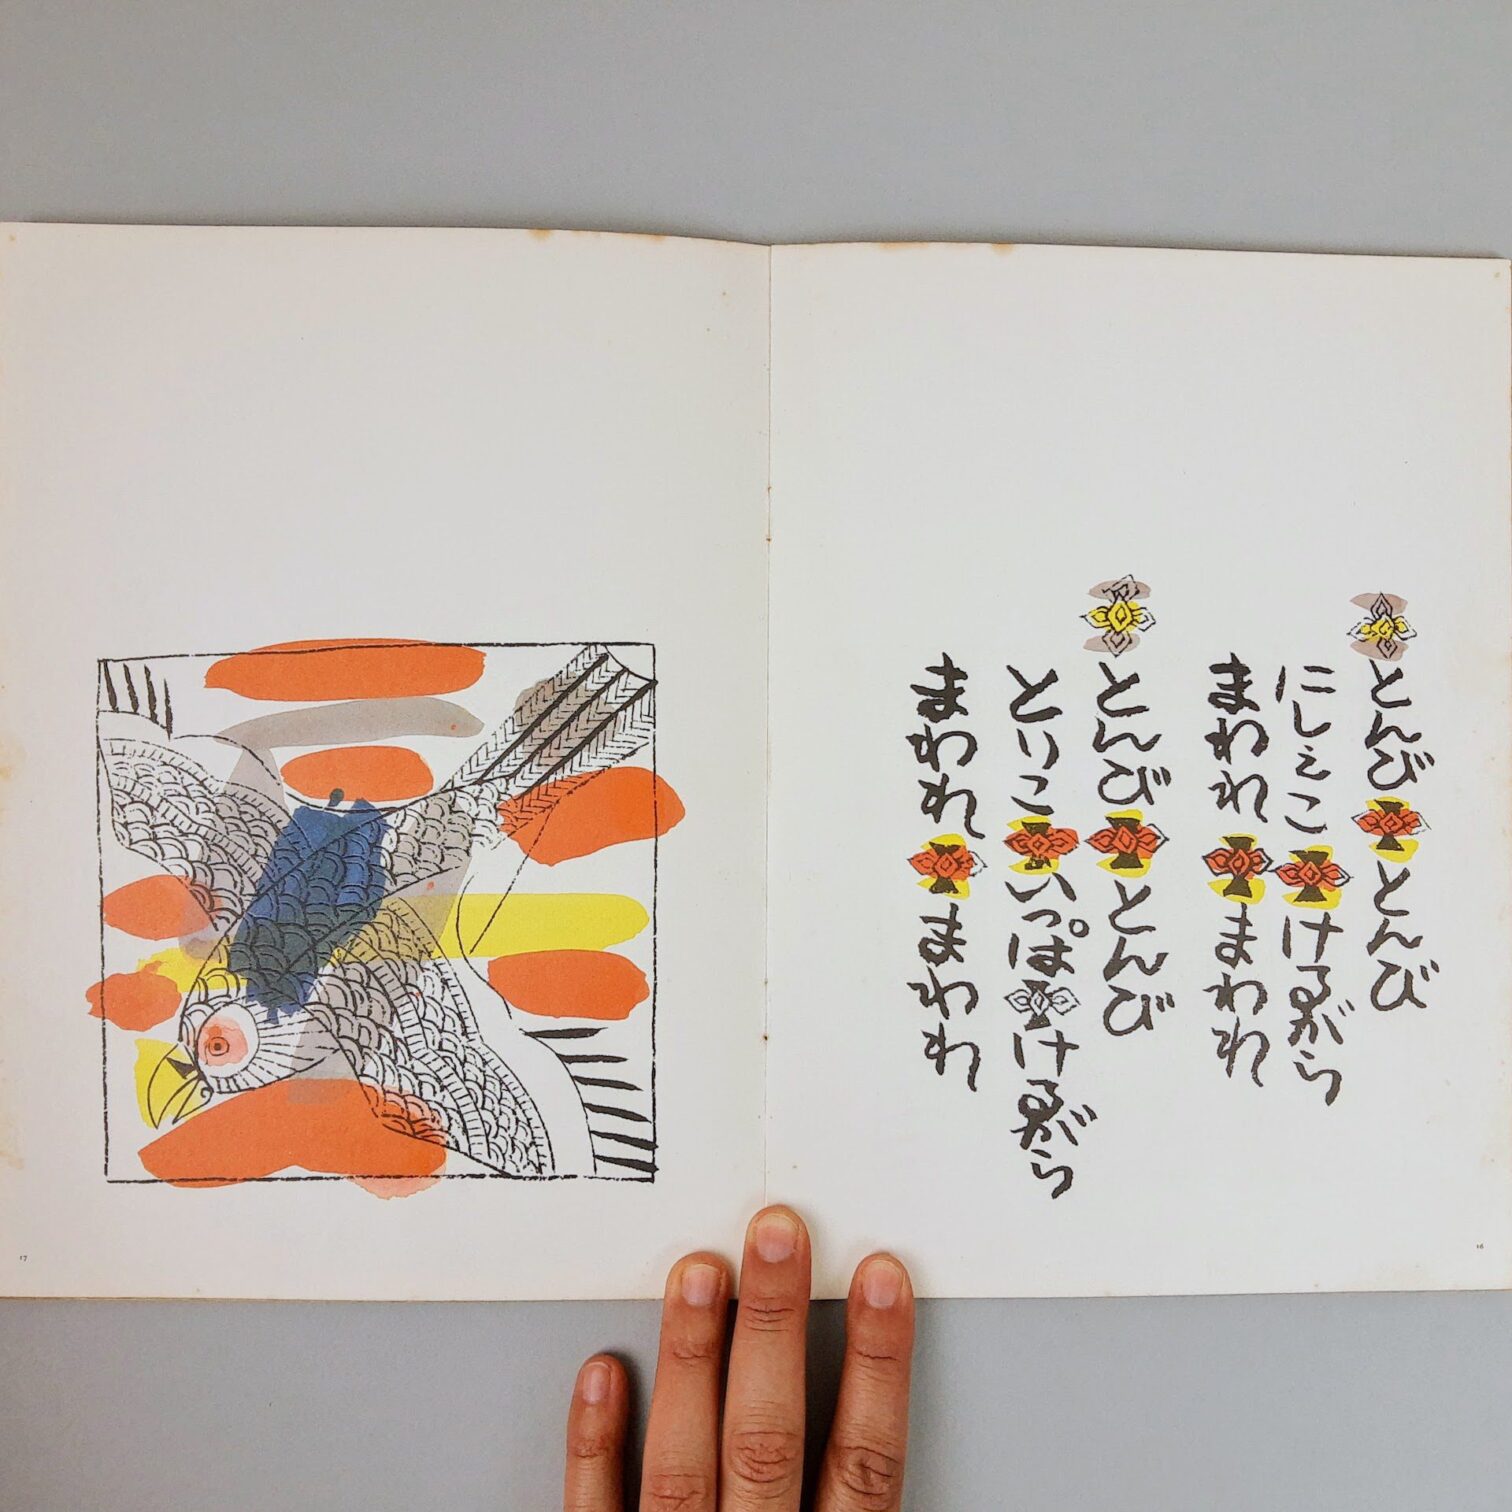 とんび とんび
にしぇこ けるがら
まわれ まわれ
とんび とんび
とりこ いっぱ けるがら
まわれ まわれ
16
17